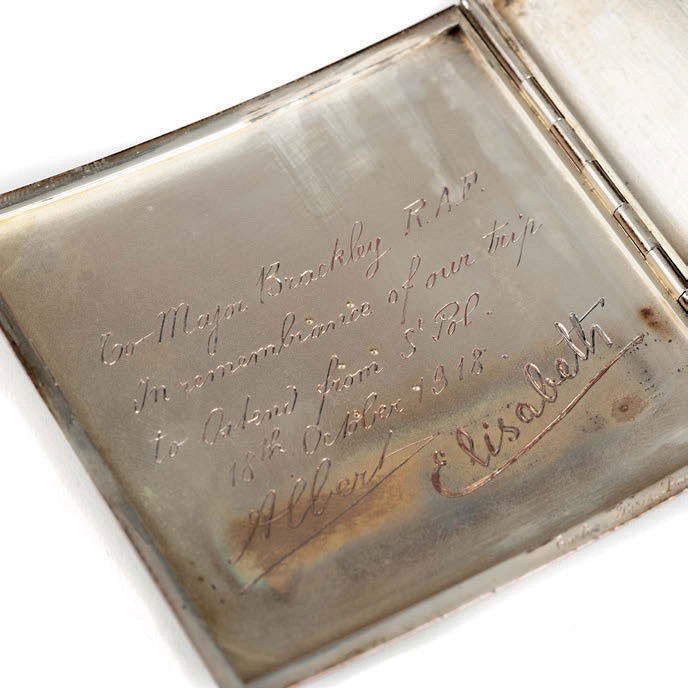 To Major Brackley R.A.F.
In remembrance of our trip
to Ostend from St Pol.
18th October 1918.
Albert
Elisabeth